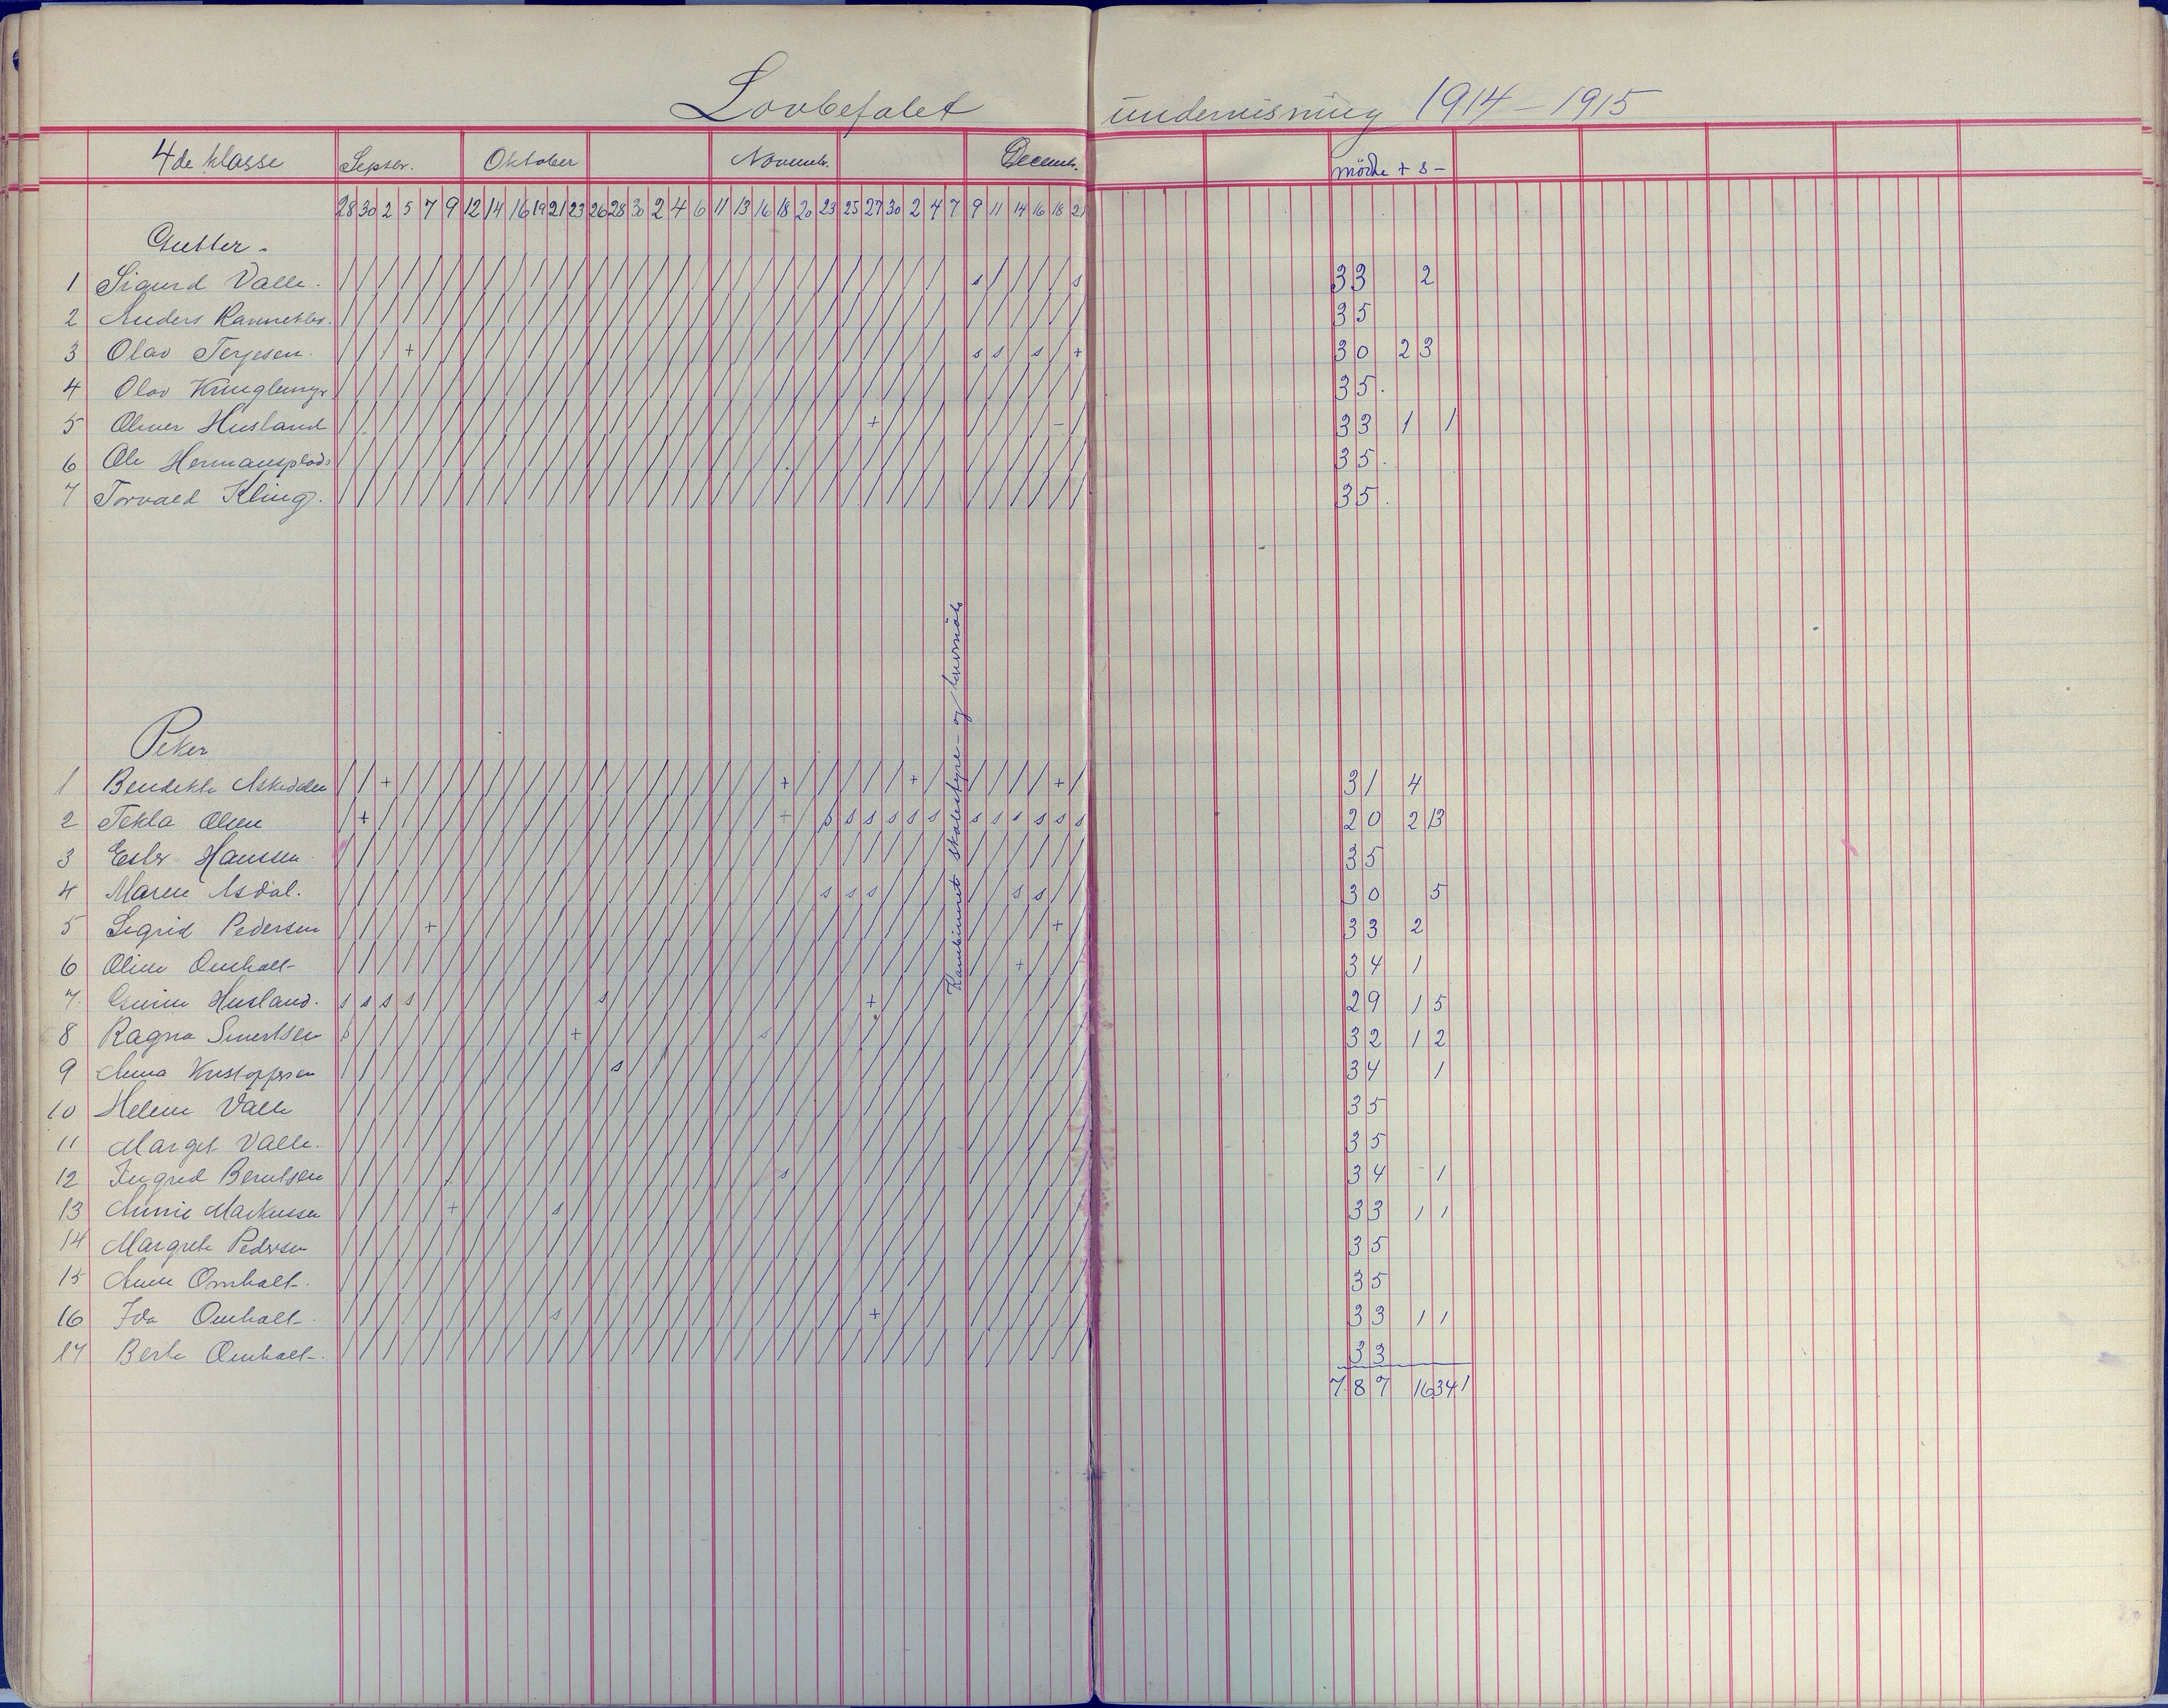 Lovbefalet undervisning 1914 – 1915
4de klasse Septbr. Oktober Novembr. Decembr. mödte + s –
28 30 2 5 7 9 12 14 16 19 21 23 26 28 30 2 4 6 11 13 16 18 20 23 25 27 30 2 4 7 9 11 14 16 18 21
Gutter.
1 Sigurd Valle. / / / / / / / / / / / / / / / / / / / / / / / / / / / / / s / / / / s 33 2
2 Anders 35
3 Olav Terjesen. + s s s + 30 2 3
4 Olav Kringlemyr 35.
5 Oliver Husland + – 33 1 1
6 Ole Hermansplads 35.
7 Torvald Kling. 35.
Piker
1 Bendikte Askedalen + + + + 31 4
2 Tekla Olsen + + s s s s s s s s s s s s 20 2 13
3 Ester Hanssen 35
4 Maren Asdal. s s s s s 30 5
5 Sigrid Pedersen + + 33 2
6 Oline Omholt + 34 1
7. Husland. s s s s s + 29 1 5
8 Ragna s + s 32 1 2
9 Anna Kristoffersen s 34 1
10 Helene Valle 35
11 Margit Valle. 35
12 Ingrid Berntsen s 34 1
13 Minnie Markussen + s 33 1 1
14 Margrete Pedersen 35
15 Anne Omholt. 35
16 Ida Omholt. s + 33 1 1
17 Berte Omholt. 33
787 16 34 1
Kombinert skolestyre- og